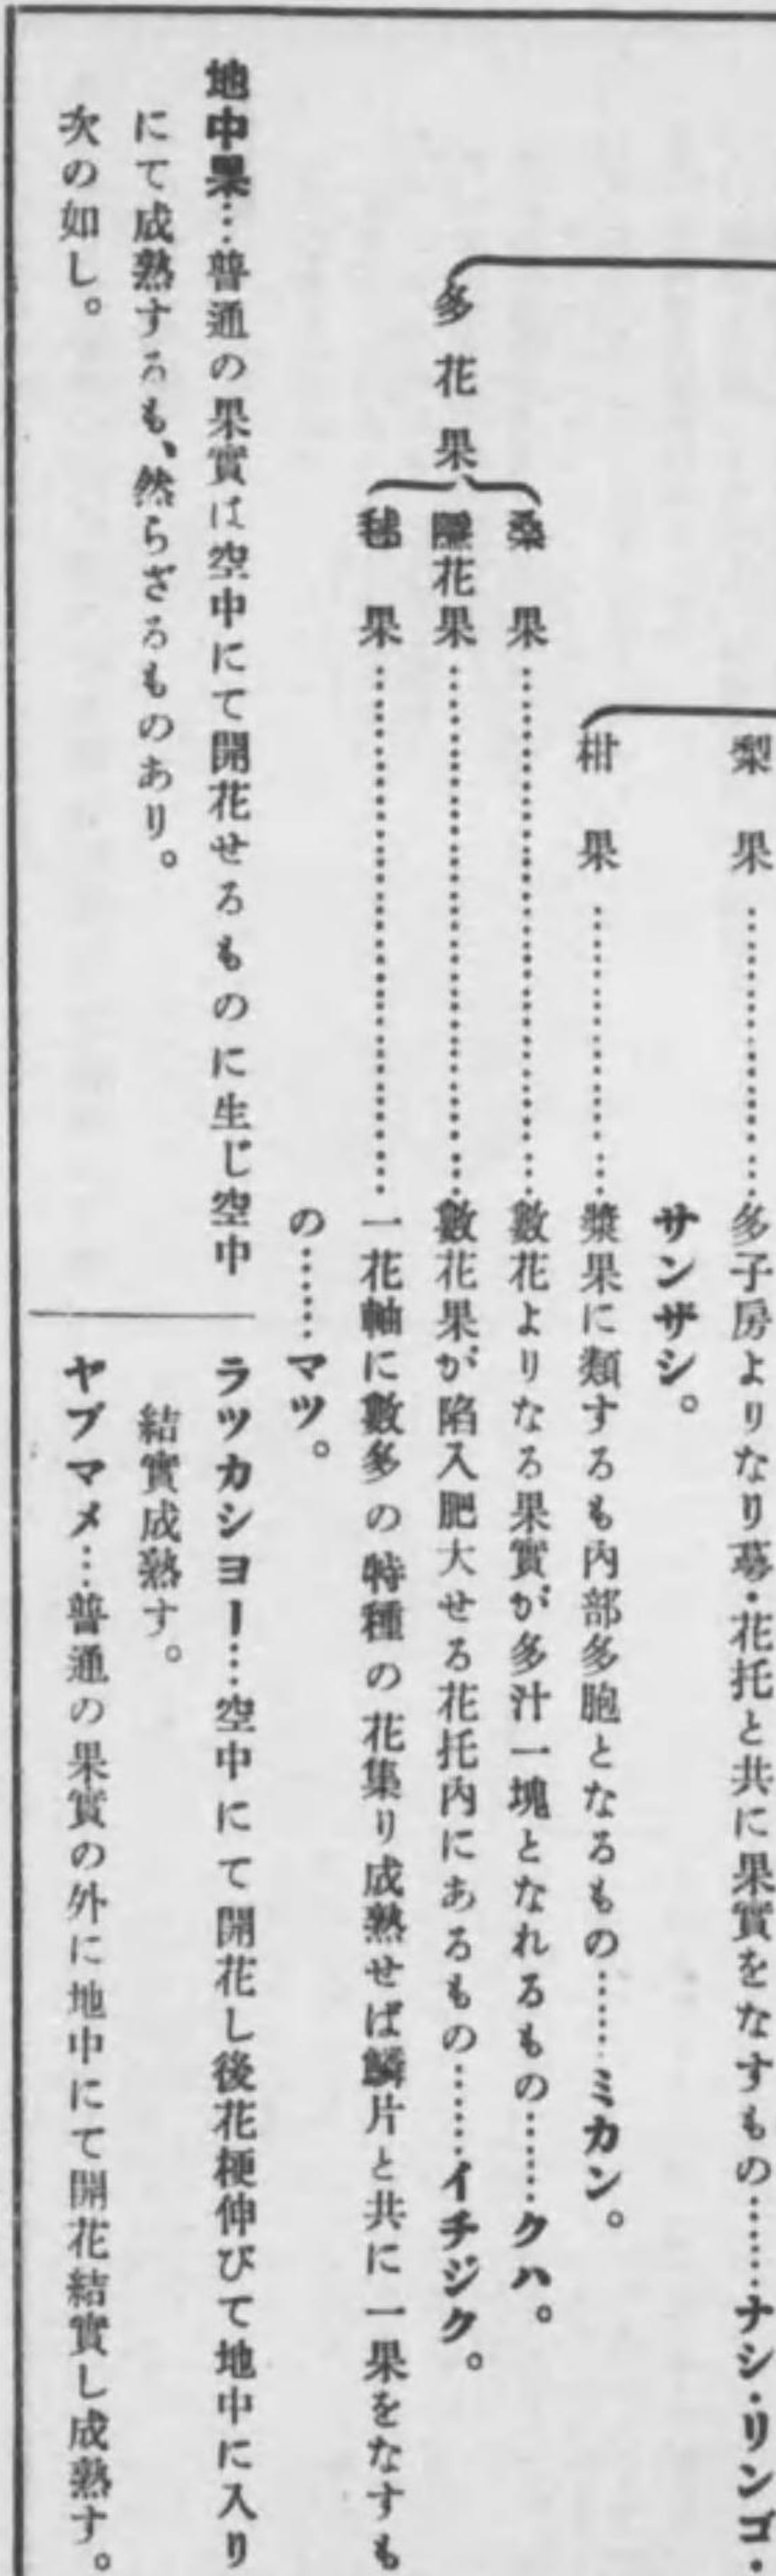 梨果……………多子房よりなり萼・花托と共に果實をなすもの……ナシ・リンゴ・
サンザシ。
柑果……………漿果に類するも内部多胞となるもの……ミカン。
多花果
桑果……………數花よりなる果實が多汁一塊となれるもの……クハ。
隱花果……………數花果が陷入肥大せる花托内にあるもの……イチジク。
毬果……………一花軸に數多の特種の花集り成熟せば鱗片と共に一果をなすも
の……マツ。
地中果…普通の果實は空中にて開花せるものに生じ空中
にて成熟するも、然らざるものあり。
次の如し。
ラツカシヨー…空中にて開花し後花梗伸びて地中に入り
結實成熟す。
ヤブマメ…普通の果實の外に地中にて開花結實し成熟す。